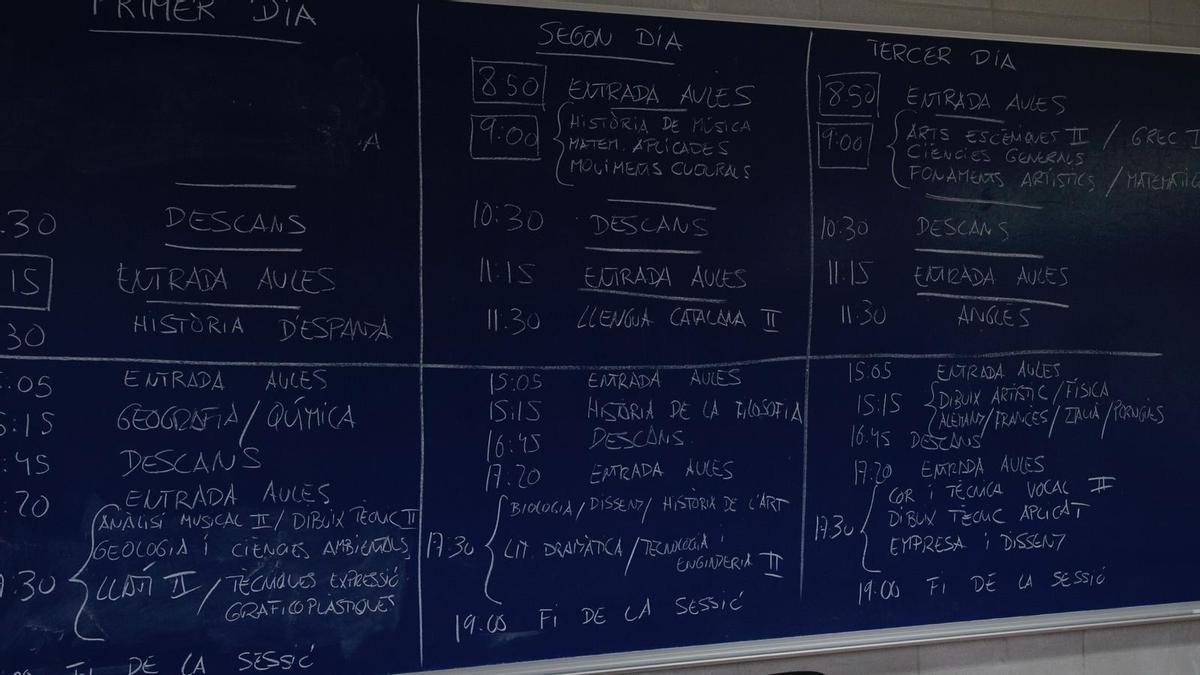 PRIMER DIA
DESCANS
ENTRADA AULES
HISTÒRIA D'ESPANYA
ENTRADA AULES
GEOGRAFIA / QUÍMICA
DESCANS
ENTRADA AULES
ANÀLISI MUSICAL II / DIBUIX TÈCNIC II
GEOLOGIA i CIÈNCIES AMBIENTALS
LLATÍ II / TÈCNIQUES EXPRESSIÓ
GRÀFICOPLÀSTIQUES
FI DE LA SESSIÓ
SEGON DIA
8:50 ENTRADA AULES
9:00 HISTÒRIA DE MÚSICA
MATEM. APLICADES
MOVIMENTS CULTURALS
10:30 DESCANS
11:15 ENTRADA AULES
11:30 LLENGUA CATALANA II
15:05 ENTRADA AULES
15:15 HISTÒRIA DE LA FILOSOFIA
16:45 DESCANS
17:20 ENTRADA AULES
17:30 BIOLOGIA / DISSENY / HISTÒRIA DE L'ART
LIT. DRAMÀTICA / TECNOLOGIA i
ENGINYERIA II
19:00 FI DE LA SESSIÓ
TERCER DIA
8:50 ENTRADA AULES
9:00 ARTS ESCÈNIQUES II / GREC
CIÈNCIES GENERALS
FONAMENTS ARTÍSTICS /
10:30 DESCANS
11:15 ENTRADA AULES
11:30 ANGLÈS
15:05 ENTRADA AULES
15:15 DIBUIX ARTÍSTIC / FÍSICA
ALEMANY / FRANCÈS / ITALIÀ / PORTUGUÈS
16:45 DESCANS
17:20 ENTRADA AULES
17:30 COR i TÈCNICA VOCAL II
DIBUIX TÈCNIC APLICAT
EMPRESA i DISSENY
19:00 FI DE LA SESSIÓ